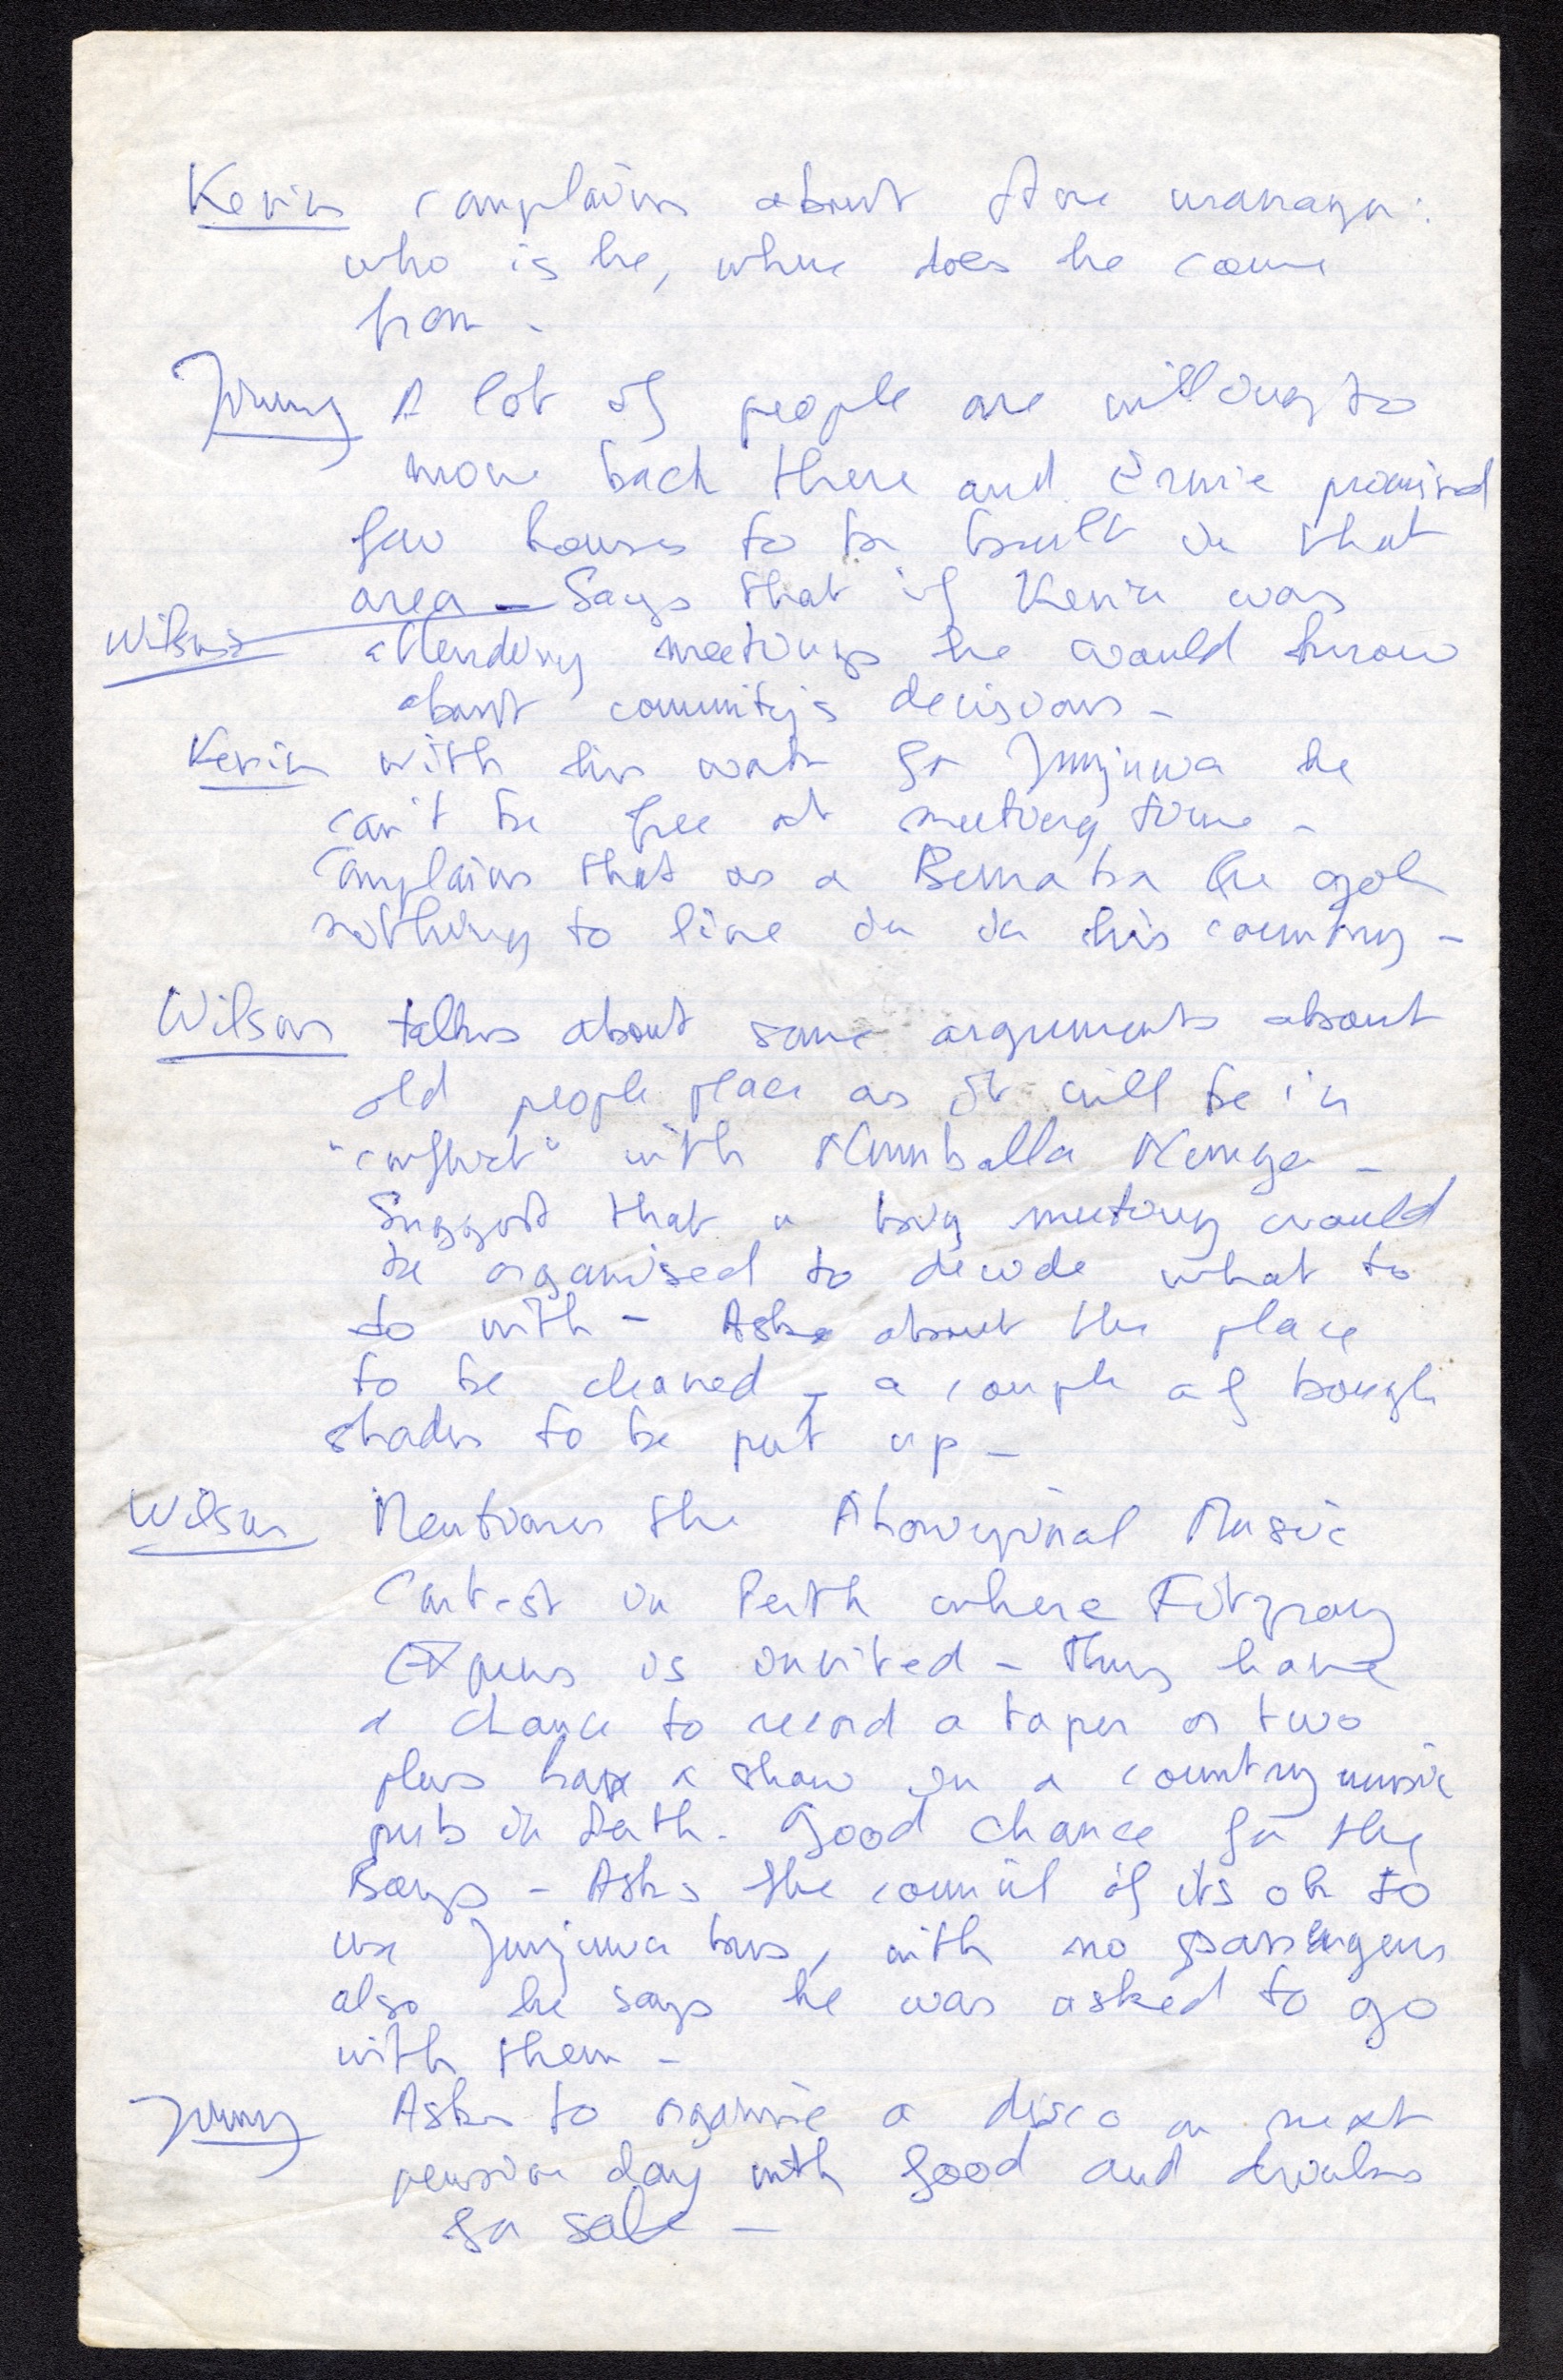 Kevin complains about store manager:
who is he, where does he come
from -
Jimmy A lot of people are willing to
move back there and Ernie promised
few houses to be built in that
area - Says that if Kevin was
Wilson attending meetings he would know
about community's decisions -
Kevin with his work for Junjuwa he
can't be free at meeting time -
Complains that as a Bunaba he got
nothing to live in in his country -
Wilson talks about some arguments about
old people place as it will be in
"conflict" with
Suggest that a big meeting would
be organised to decide what to
do with - Asks about the place
to be cleaned - a couple of bough
shades to be put up -
Wilson Mentiones the Aboriginal Music
Contest in Perth where Fitzroy
Express is invited - They have
a chance to record a tape or two
plus have a show in a country music
pub in Perth. Good chance for the
Boys - Asks the council if its ok to
use Junjuwa bus, with no passengers
also he says he was asked to go
with them -
Jimmy Asks to organise a disco on next
pension day with food and drinks
for sale -